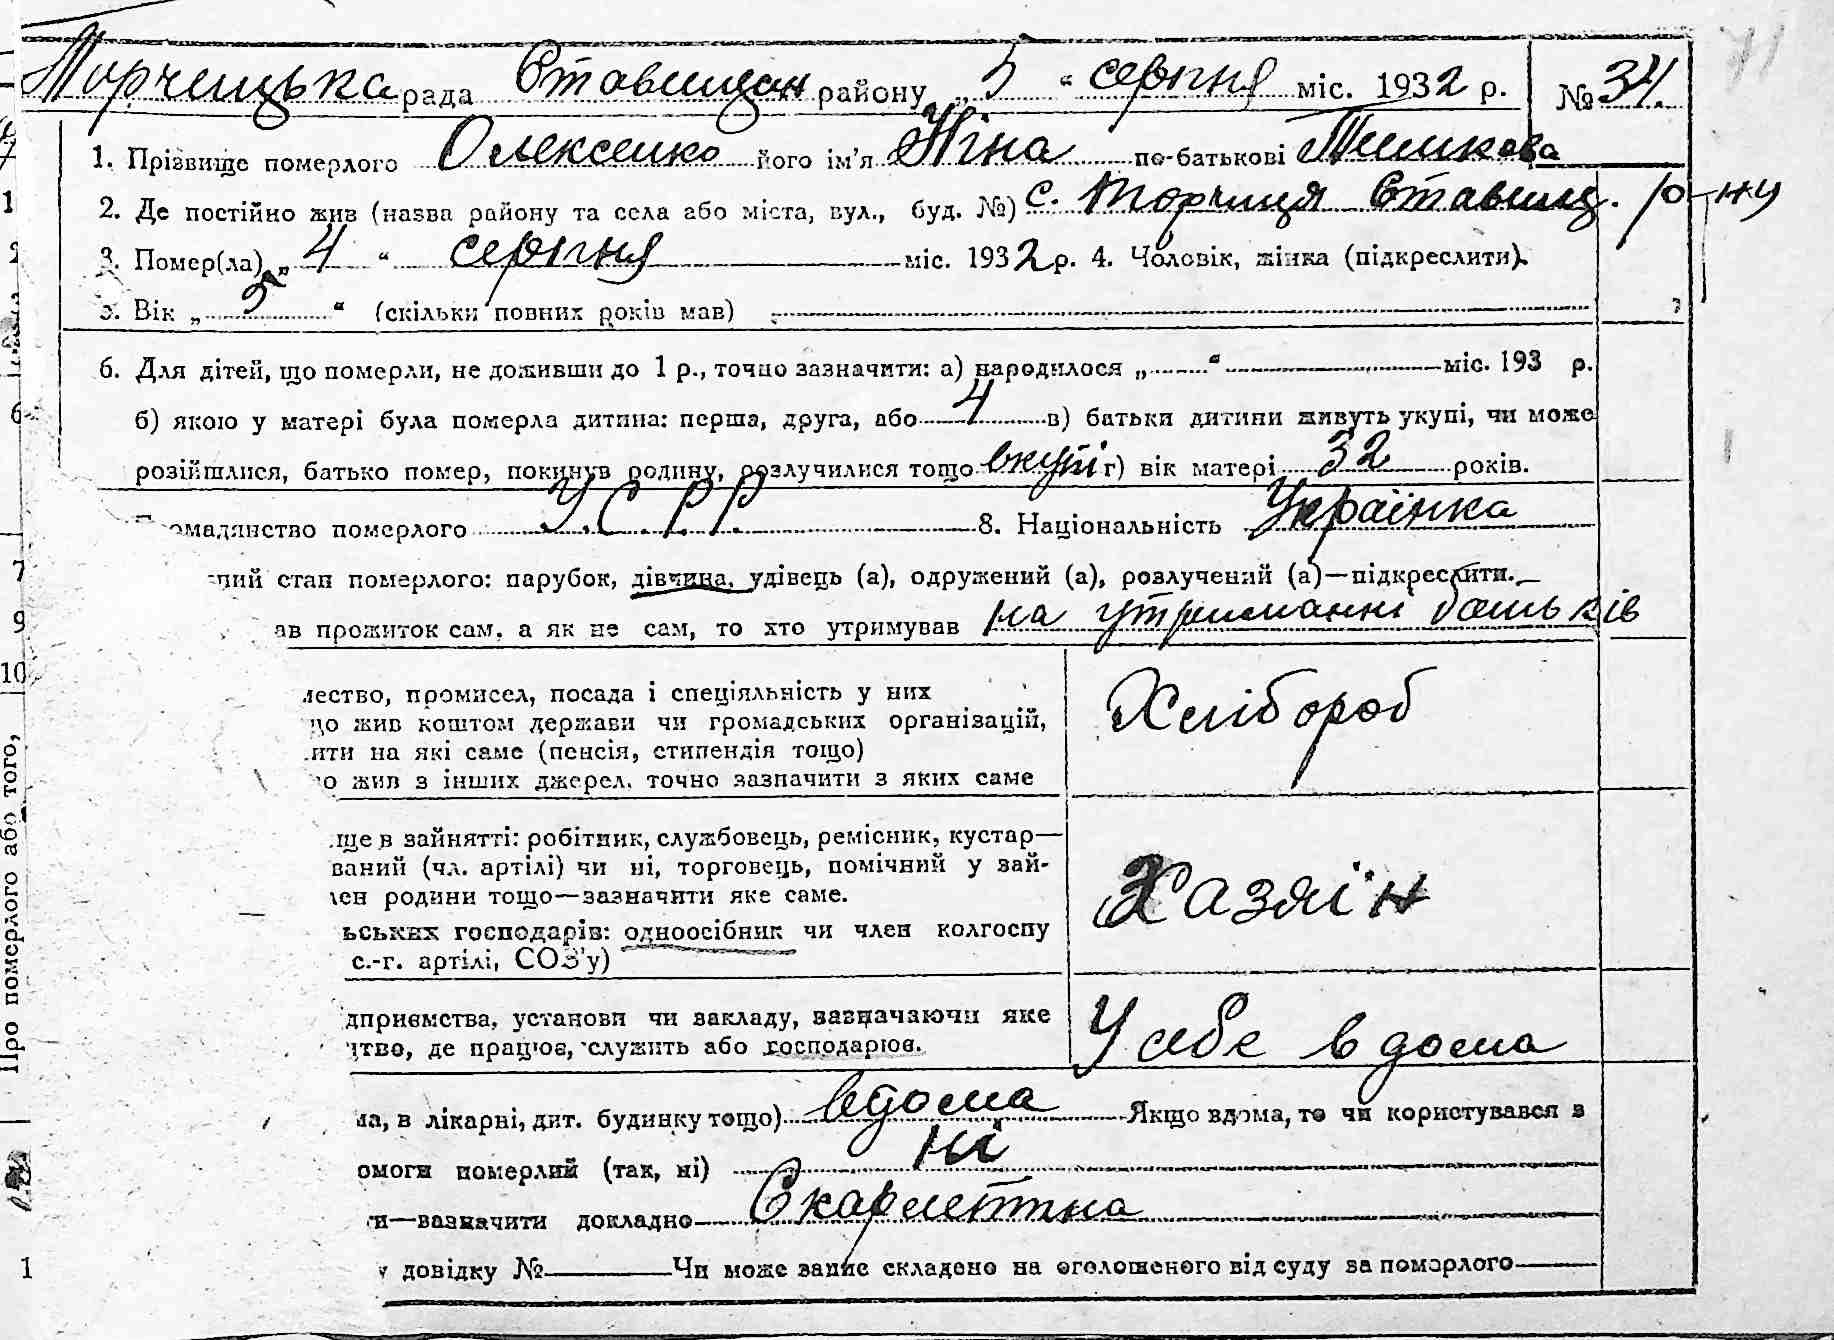 Торчицька рада Ставищан району „ 5 “ серпня міс. 1932 р. № 34.
1. Прізвище померлого Олексенко його ім'я Ніна по-батькові Тимкова
2. Де постійно жив (назва району та села або міста, вул., буд. №) с. Торчиця Ставищ. р-ну
3. Помер(ла) „ 4 “ серпня міс. 1932 р. 4. Чоловік, жінка (підкреслити).
5. Вік „ 5 “ (скільки повних років мав)
6. Для дітей, що померли, не доживши до 1 р., точно зазначити: а) народилося „ “ міс. 193 р.
б) якою у матері була померла дитина: перша, друга, або 4 в) батьки дитини живуть укупі, чи може
розійшлися, батько помер, покинув родину, розлучилися тощо вкупі г) вік матері 32 років.
омадянство померлого У.С.Р.Р. 8. Національність Українка
ний стан померлого: парубок, дівчина, удівець (а), одружений (а), розлучений (а)—підкреслити.
ав прожиток сам, а як не сам, то хто утримував на утриманні батьків
ество, промисел, посада і спеціяльність у них
що жив коштом держави чи громадських організацій, Хлібороб
ити на які саме (пенсія, стипендія тощо)
о жив з інших джерел, точно зазначити з яких саме
ще в зайнятті: робітник, службовець, ремісник, кустар—
ваний (чл. артілі) чи ні, торговець, помічний у зай-
лен родини тощо—зазначити яке саме. Хазяїн
ьських господарів: одноосібник чи член колгоспу
с.-г. артілі, СОЗ'у)
дприємства, установи чи закладу, зазначаючи яке
цтво, де працює, служить або господарює. У себе вдома
ма, в лікарні, дит. будинку тощо) вдома Якщо вдома, то чи користувався з
омоги померлий (так, ні) ні
ти—зазначити докладно Скарлетина
у довідку № Чи може запис складено на оголошеного від суду за померлого
Про померлого або того,
1
2
6
7
9
10
1